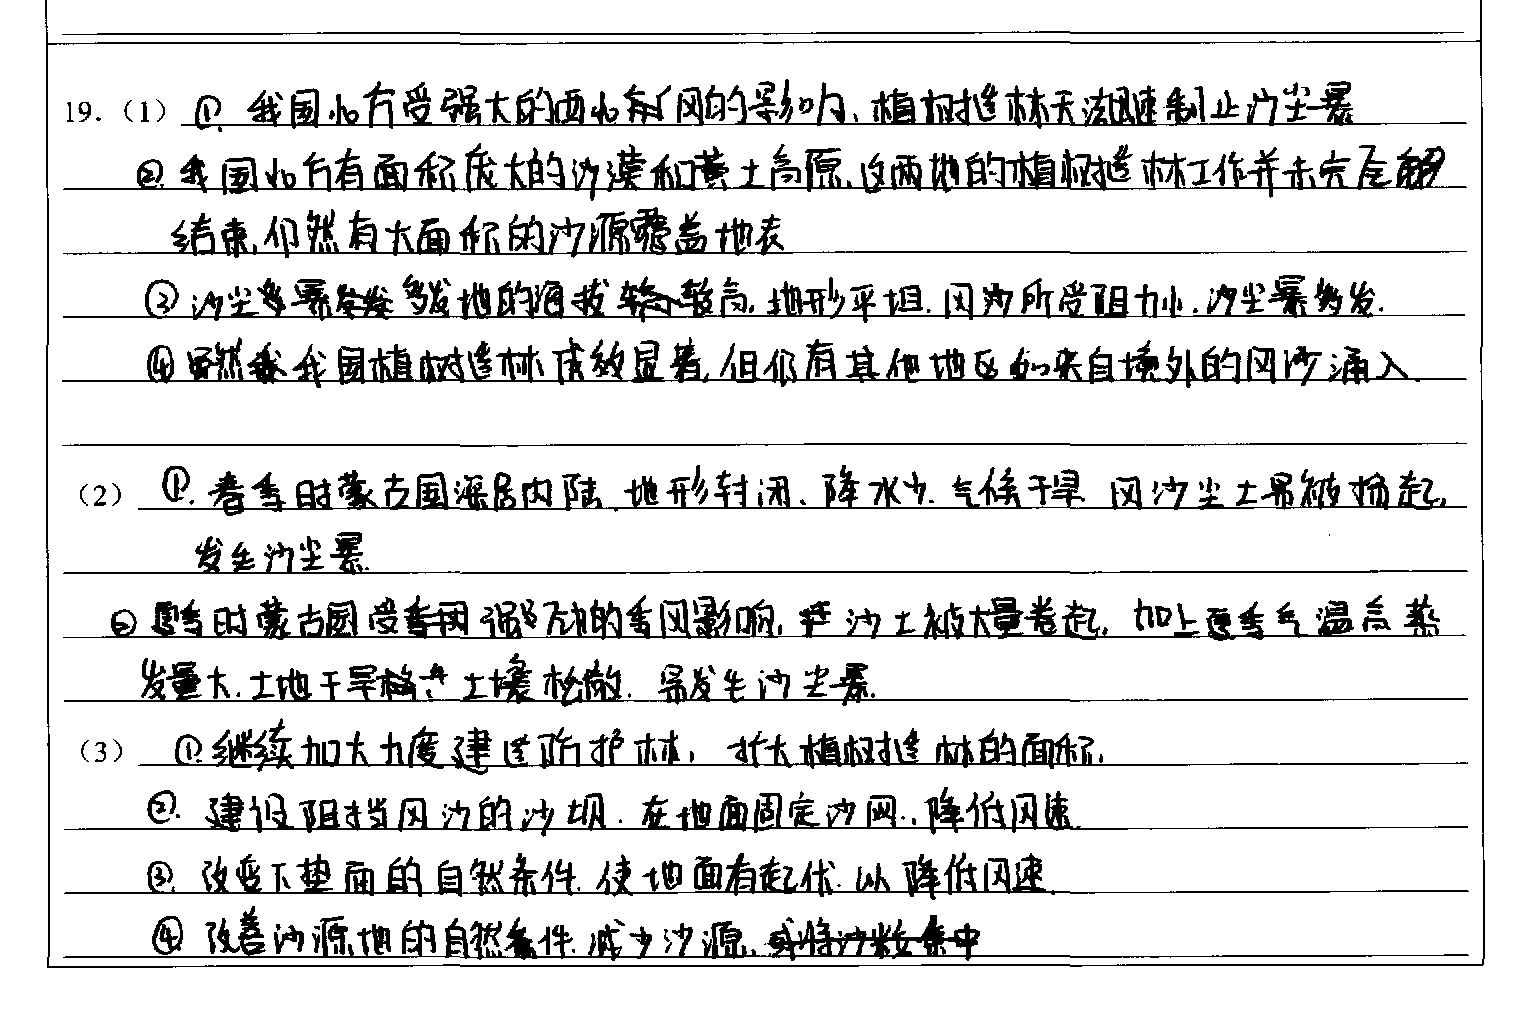 19.(1) ①. 我国北方受强大的西北风的影响、植树造林无法迅速制止沙尘暴
②. 我国北方有面积庞大的沙漠和黄土高原、这两地的植树造林工作并未完全
结束,仍然有大面积的沙源覆盖地表
③ 沙尘暴多发地的海拔较高,地形平坦.风沙所受阻力小.沙尘暴多发.
④ 虽然我国植树造林成效显著,但仍有其他地区如来自境外的风沙涌入.
(2) ①. 春季时蒙古国深居内陆.地形封闭、降水少.气候干旱 风沙尘土易被扬起,
发生沙尘暴.
② 夏季时蒙古国受强劲的季风影响,沙土被大量卷起,加上夏季气温高蒸
发量大.土地干旱土壤松散.易发生沙尘暴.
(3) ①.继续加大力度建造防护林,扩大植树造林的面积.
②. 建设阻挡风沙的沙坝.在地面固定沙网.,降低风速.
③. 改变下垫面的自然条件.使地面有起伏.以降低风速.
④. 改善沙源地的自然条件.减少沙源.